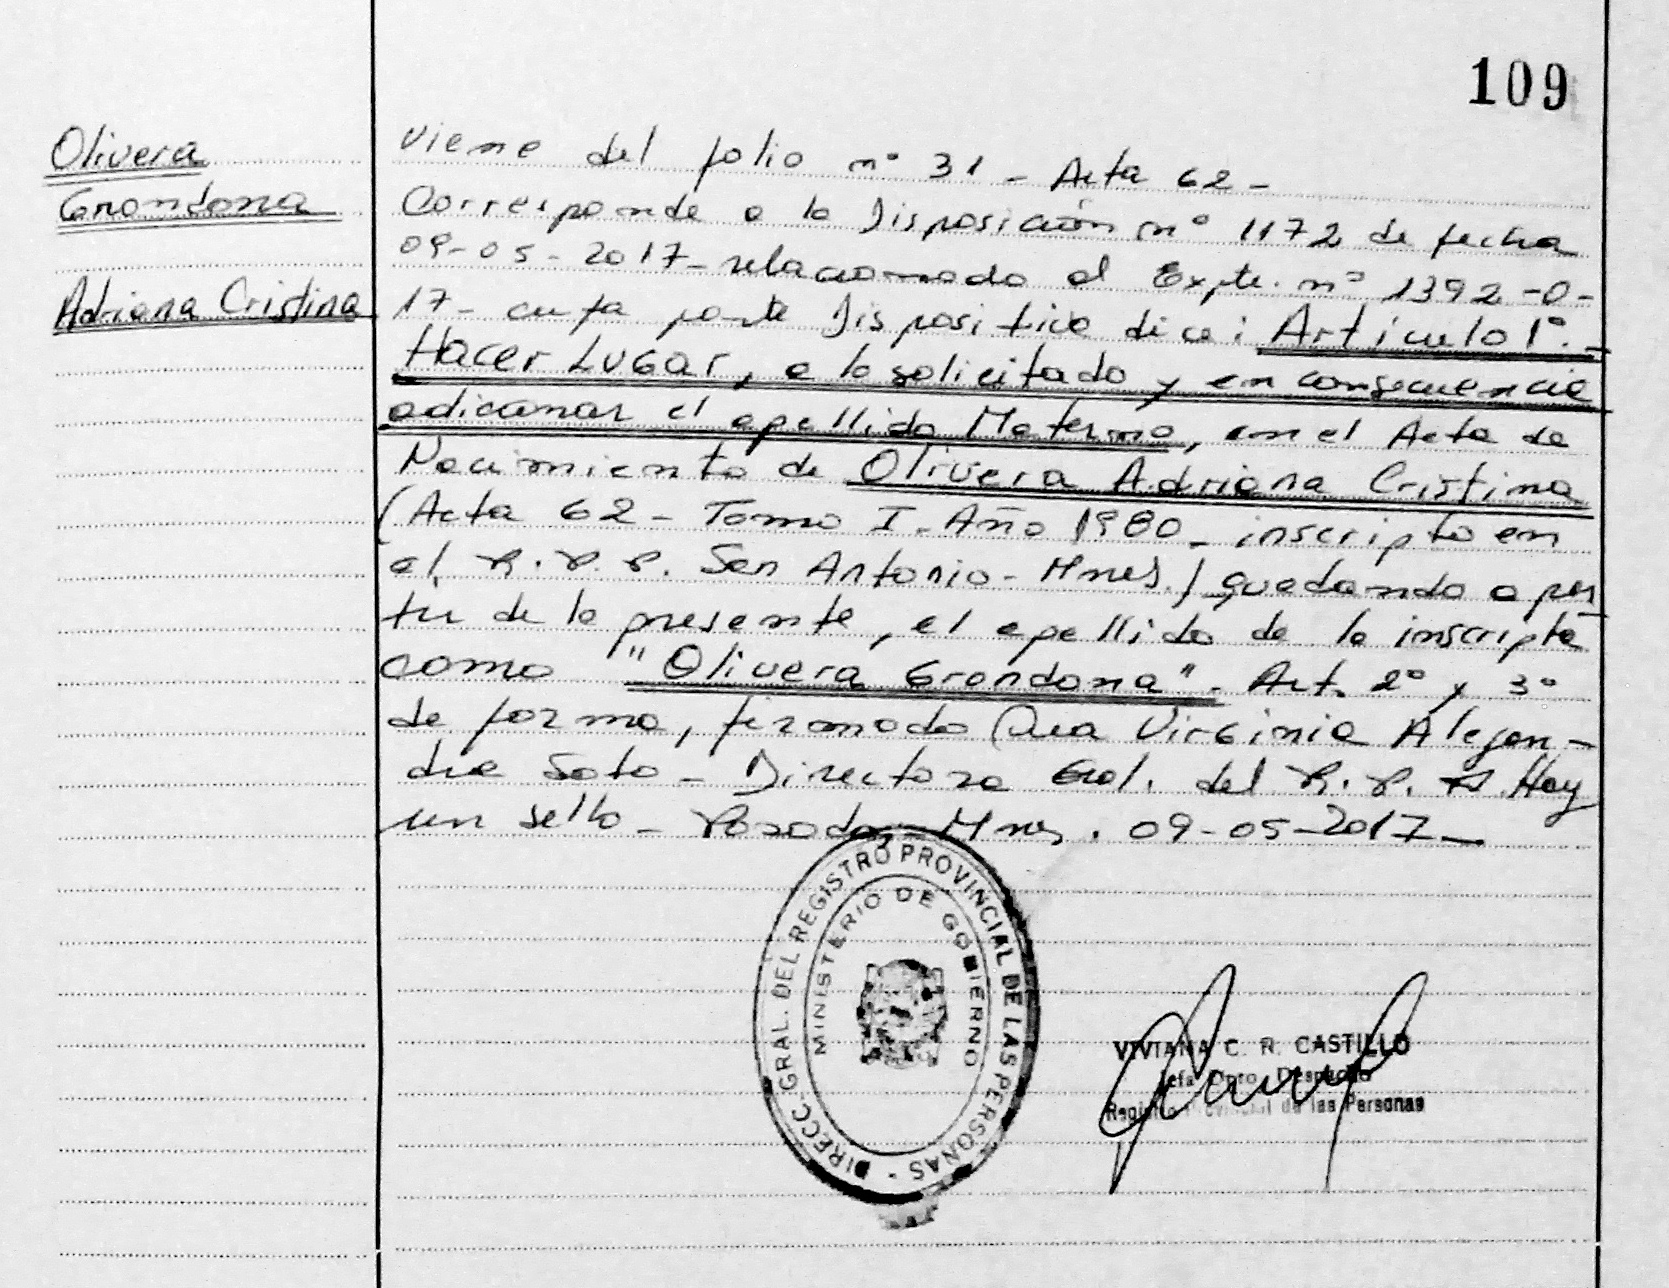 109
Olivera
Grondona
Adriana Cristina
Viene del folio nº 31 - Acta 62 -
Corresponde a la Disposición nº 1172 de fecha
09-05-2017 - relacionado al Expte. nº 1392-O-
17 - cuya parte Dispositiva dice: Artículo 1º.-
Hacer LUGAR, a lo solicitado y en consecuencia
adicionar el apellido Materno, en el Acta de
Nacimiento de Olivera Adriana Cristina
(Acta 62 - Tomo I - Año 1980 - inscripto en
el R.P.P. San Antonio - Mnes.) quedando a par
tir de la presente, el apellido de la inscripta
como "Olivera Grondona". Art. 2º y 3º
de forma, firmado Virginia Alejan-
dra Soto - Directora Gral. del R.P. Hay
un sello - Posadas - Mnes. 09-05-2017 -
DIRECC. GRAL. DEL REGISTRO PROVINCIAL DE LAS PERSONAS -
MINISTERIO DE GOBIERNO
VIVIANA C. R. CASTILLO
Jefa Dpto. Despacho
Registro Provincial de las Personas